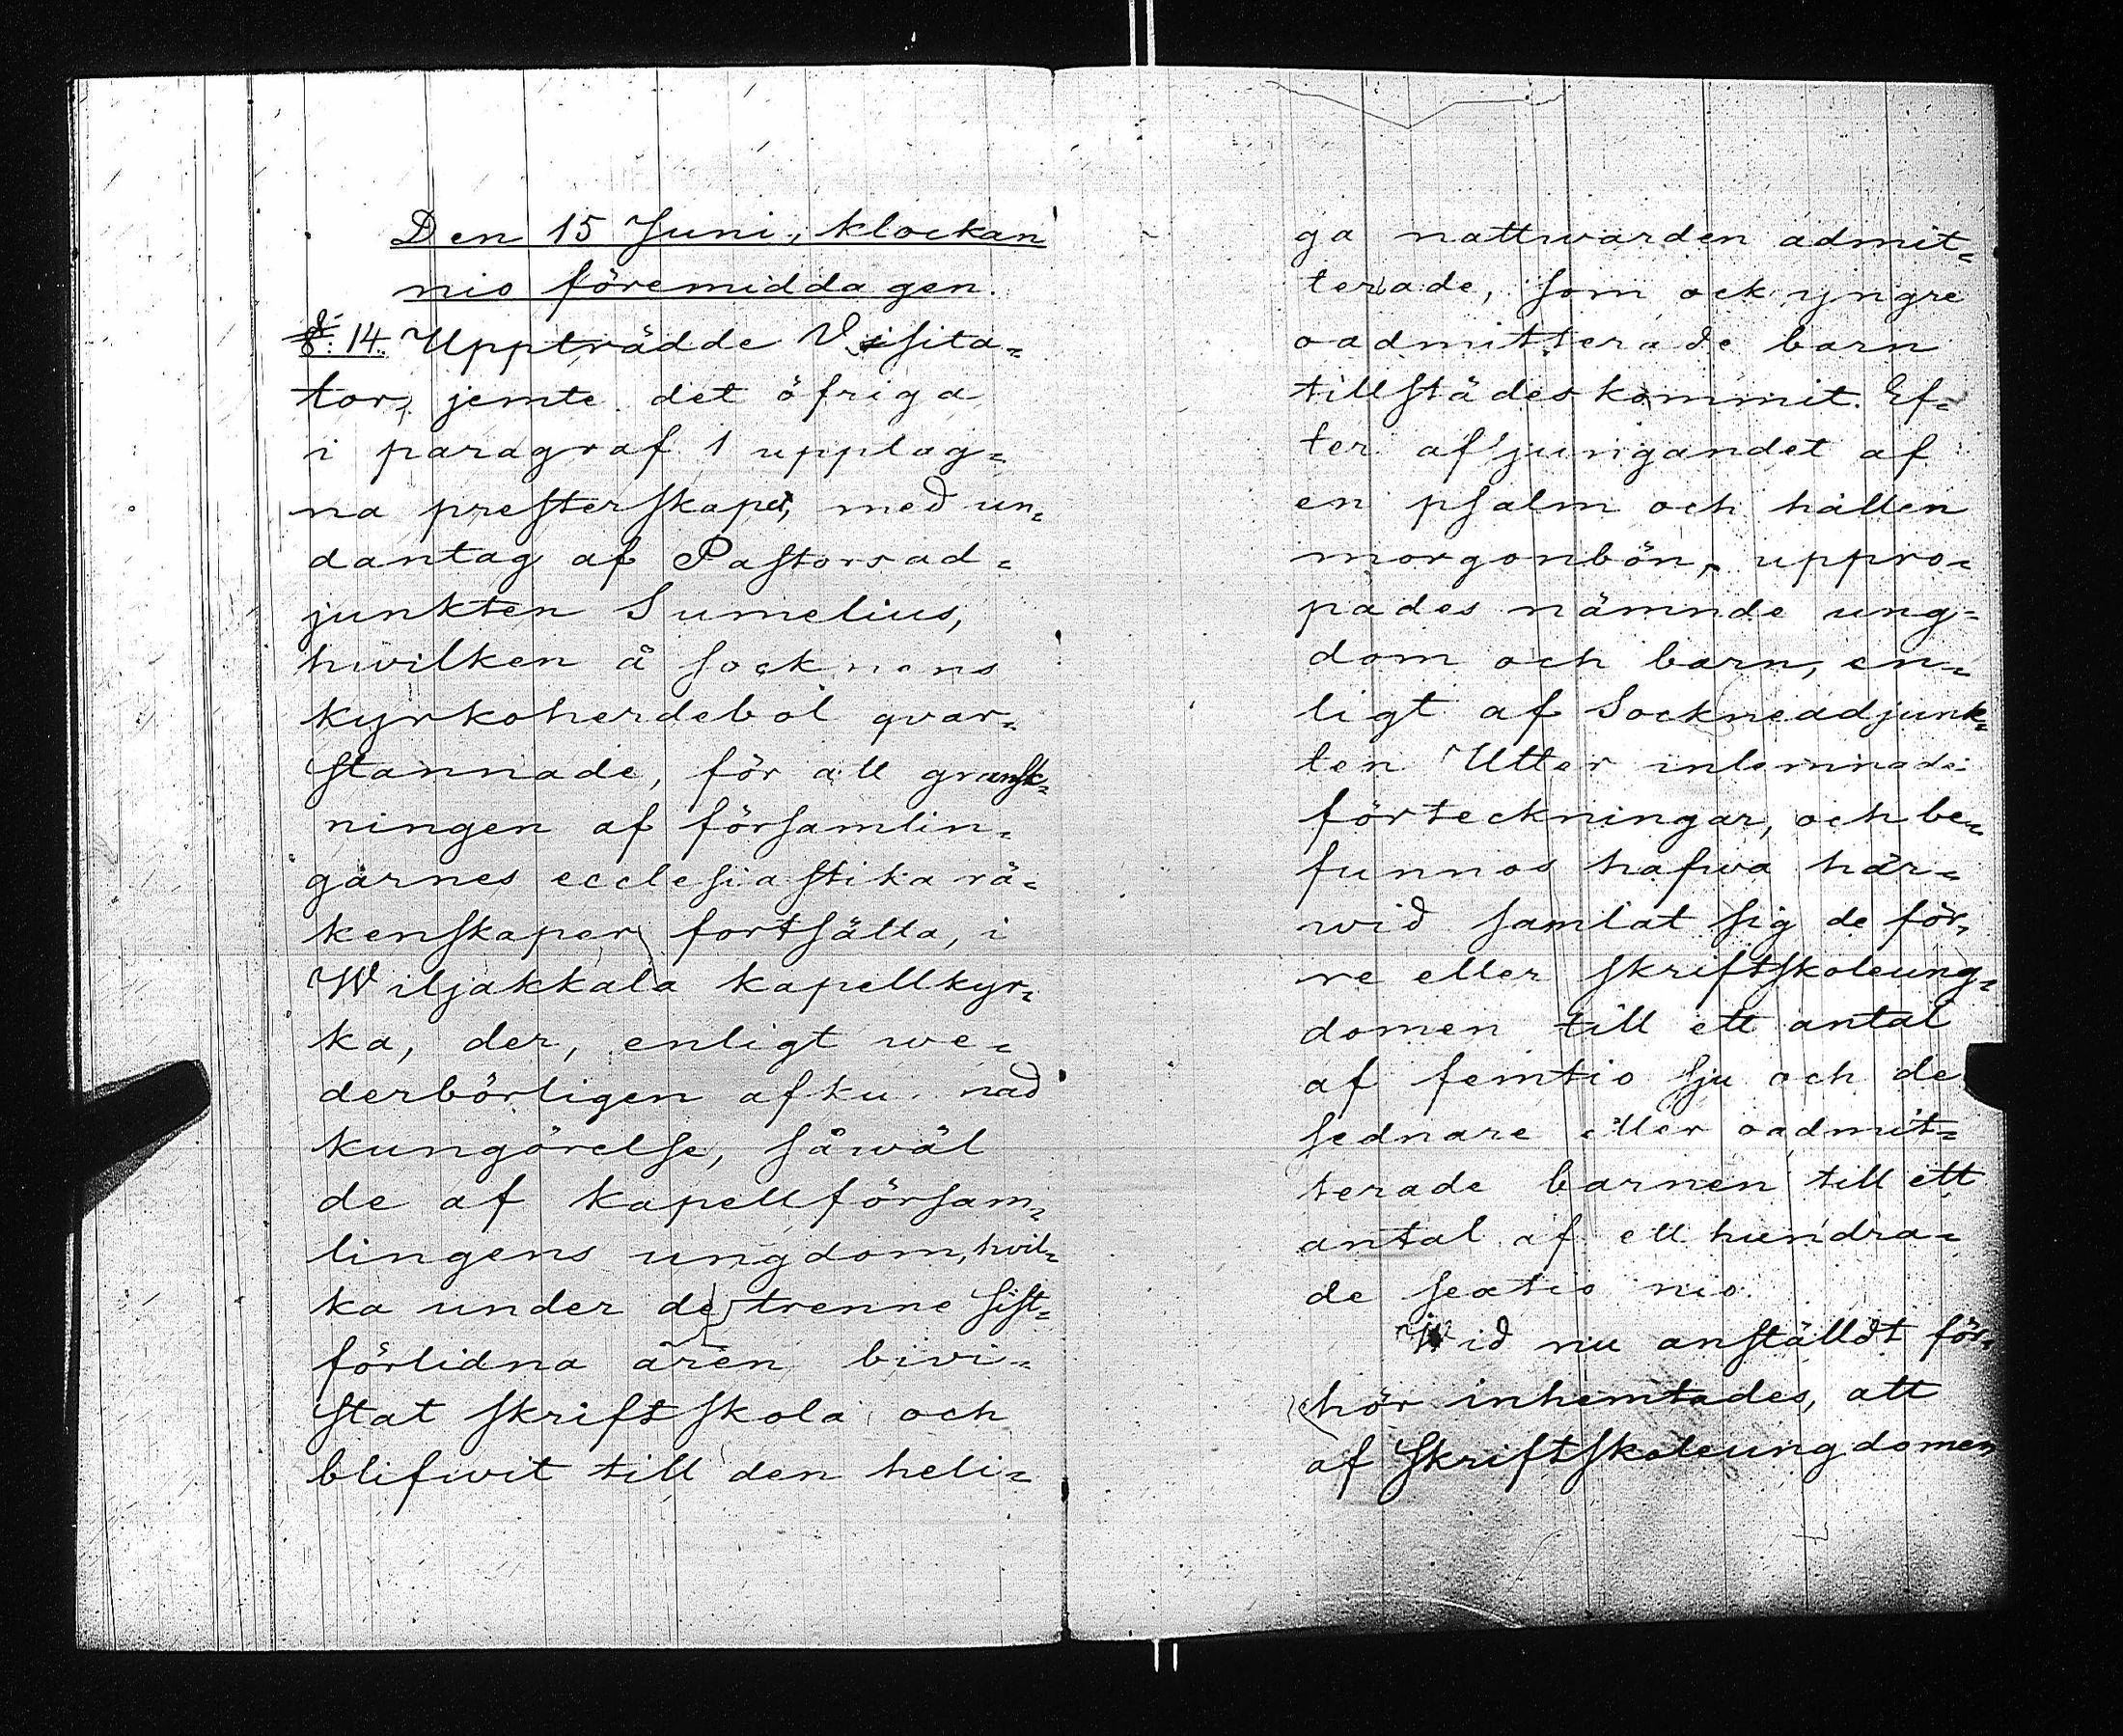 Den 15 Juni, klockan
nio föremiddagen.
§. 14. Uppträdde Visita=
tor, jemte det öfriga
i paragraf 1 upptag=
na presterskapet, med un=
dantag af Pastorsad=
junkten Sumelius,
hwilken å socknens
kyrkoherdebol qvar=
stannade, för att gransk=
ningen af församlin=
garnes ecclesiastika rä=
kenskaper fortsätta, i
Wiljakkala kapellkyr=
ka, der, enligt we=
derbörligen afku nad
kungörelse, såwäl
de af kapellförsam=
lingens ungdom, hvil=
ka under de trenne sist=
förlidna åren bivi=
stat skriftskola och
blifwit till den heli=
ga nattwarden admit=
terade, som ock yngre
oadmitterade barn
tillstädeskommit. Ef=
ter afsjungandet af
en psalm och hållen
morgonbön, uppro=
pades nämnde ung=
dom och barn, en=
ligt af Sockneadjunk=
ten Utter inlemnade
förteckningar, och be=
funnos hafwa här=
wid samlat sig de för=
re eller skriftskoleung=
domen till ett antal
af femtio sju och de
sednare eller oadmit=
terade barnen till ett
antal af ett hundra=
de sextio nio.
Wid nu anställdt för=
hör inhemtades, att
af Skriftskoleungdomen